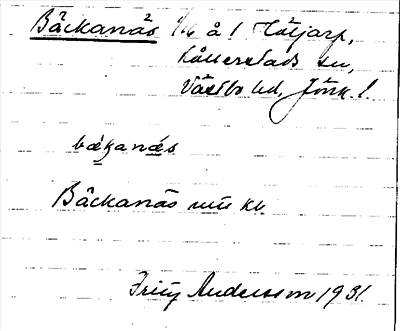 Bäckanäs 1/16 å 1 Hötjarp,
Kållerstads sn,
Västbo hd, Jönk. l.
bækanæs
Bäckanäs
Fritz Andersson 1931.